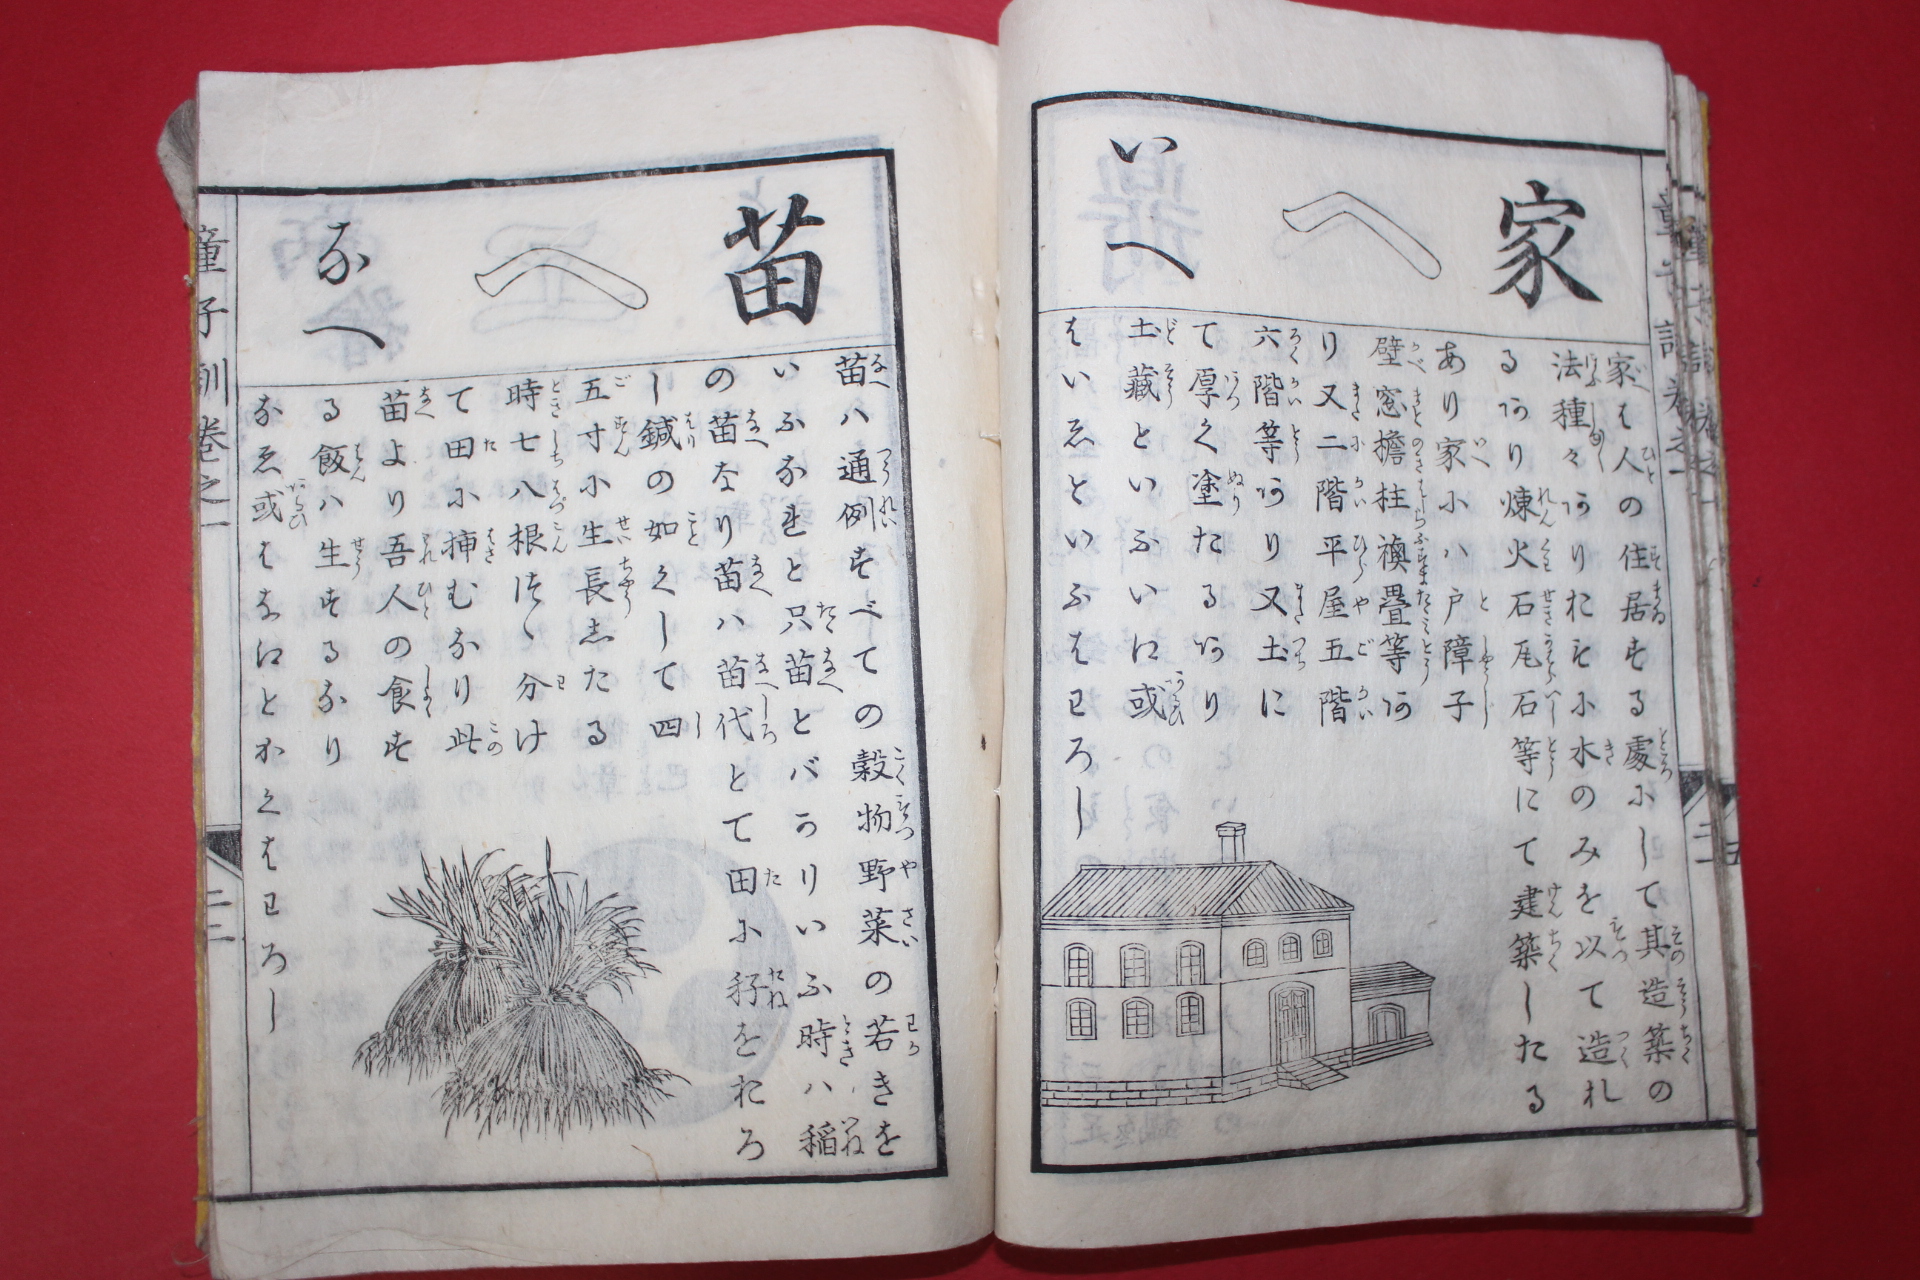 家
へ
いへ
家は人の住居する處にして其造築の
法種々ありおもに木のみを以て造れ
るあり煉火石瓦石等にて建築したる
あり家にハ戸障子
壁窓檐柱襖疊等あ
り又二階平屋五階
六階等あり又土に
て厚く塗たるあり
土藏といふいえ或
はいゑといふはわろし
苗
へ
なへ
苗ハ通例すべての穀物野菜の若きを
いふなれと只苗とバかりいふ時ハ稲
の苗なり苗ハ苗代とて田に籽をおろ
し鍼の如くして四
五寸に生長したる
時七八根づゝ分け
て田に挿むなり此
苗より吾人の食す
る飯ハ生ずるなり
なゑ或はなえとかくはわろし
童子訓卷之一